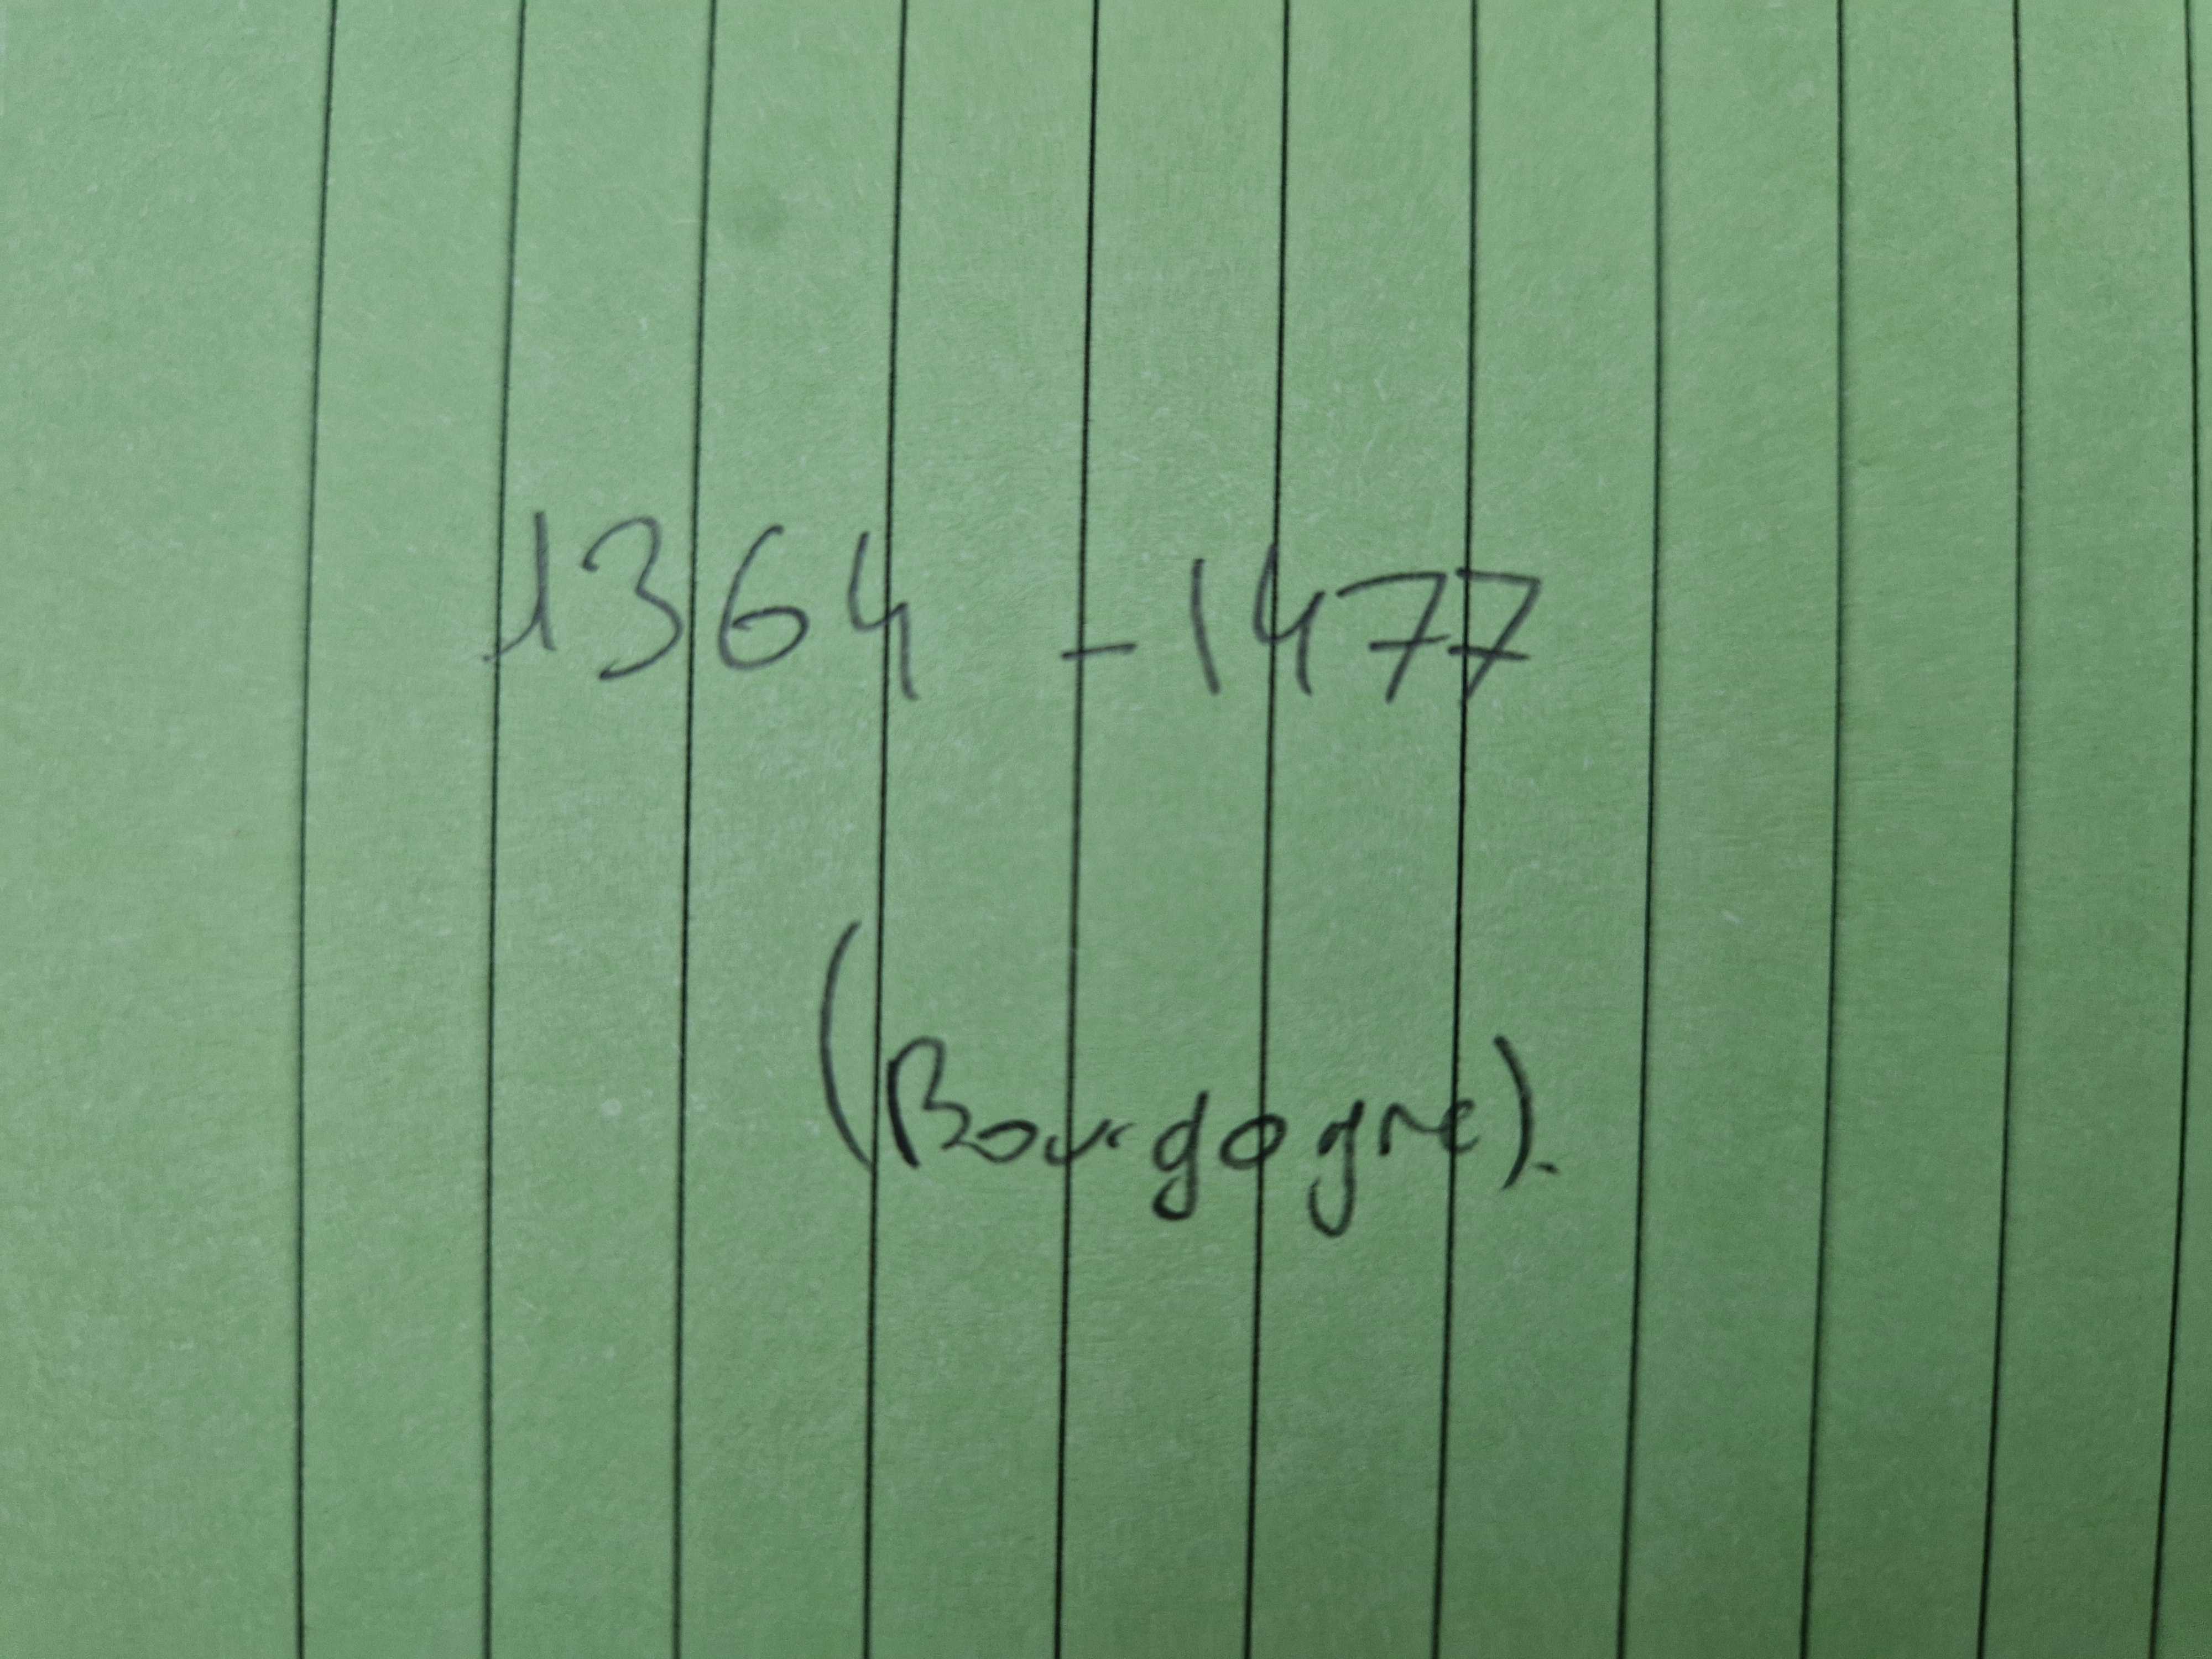 1364 - 1477
(Bourgogne).